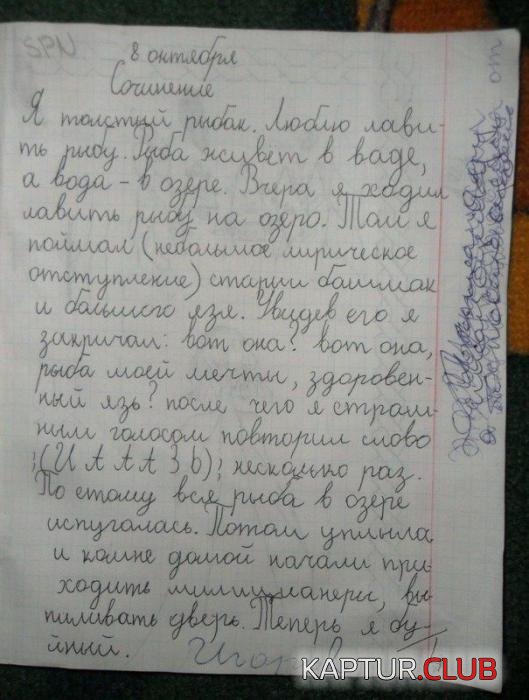 SPN
8 октября
Сочинение
Я толстый рыбак. Люблю лави-
ть рыбу. Рыба живет в ваде,
а вода - в озере. Вчера я ходил
лавить рыбу на озеро. Там я
поймал (небольшое лирическое
отступление) старии башмак
и большого язя. Увидев его я
закричал: вот она? вот она,
рыба моей мечты, здоровен-
ный язь? после чего я страш-
ным голосом повторил слово
;(И А А А З Ь); несколько раз.
По етому вся рыба в озере
испугалась. Потом уплыла
и комне домой начали при
ходить милиционеры, вы-
пиливать дверь. Теперь я бу-
йный.
Игорь
от
KAPTUR.CLUB